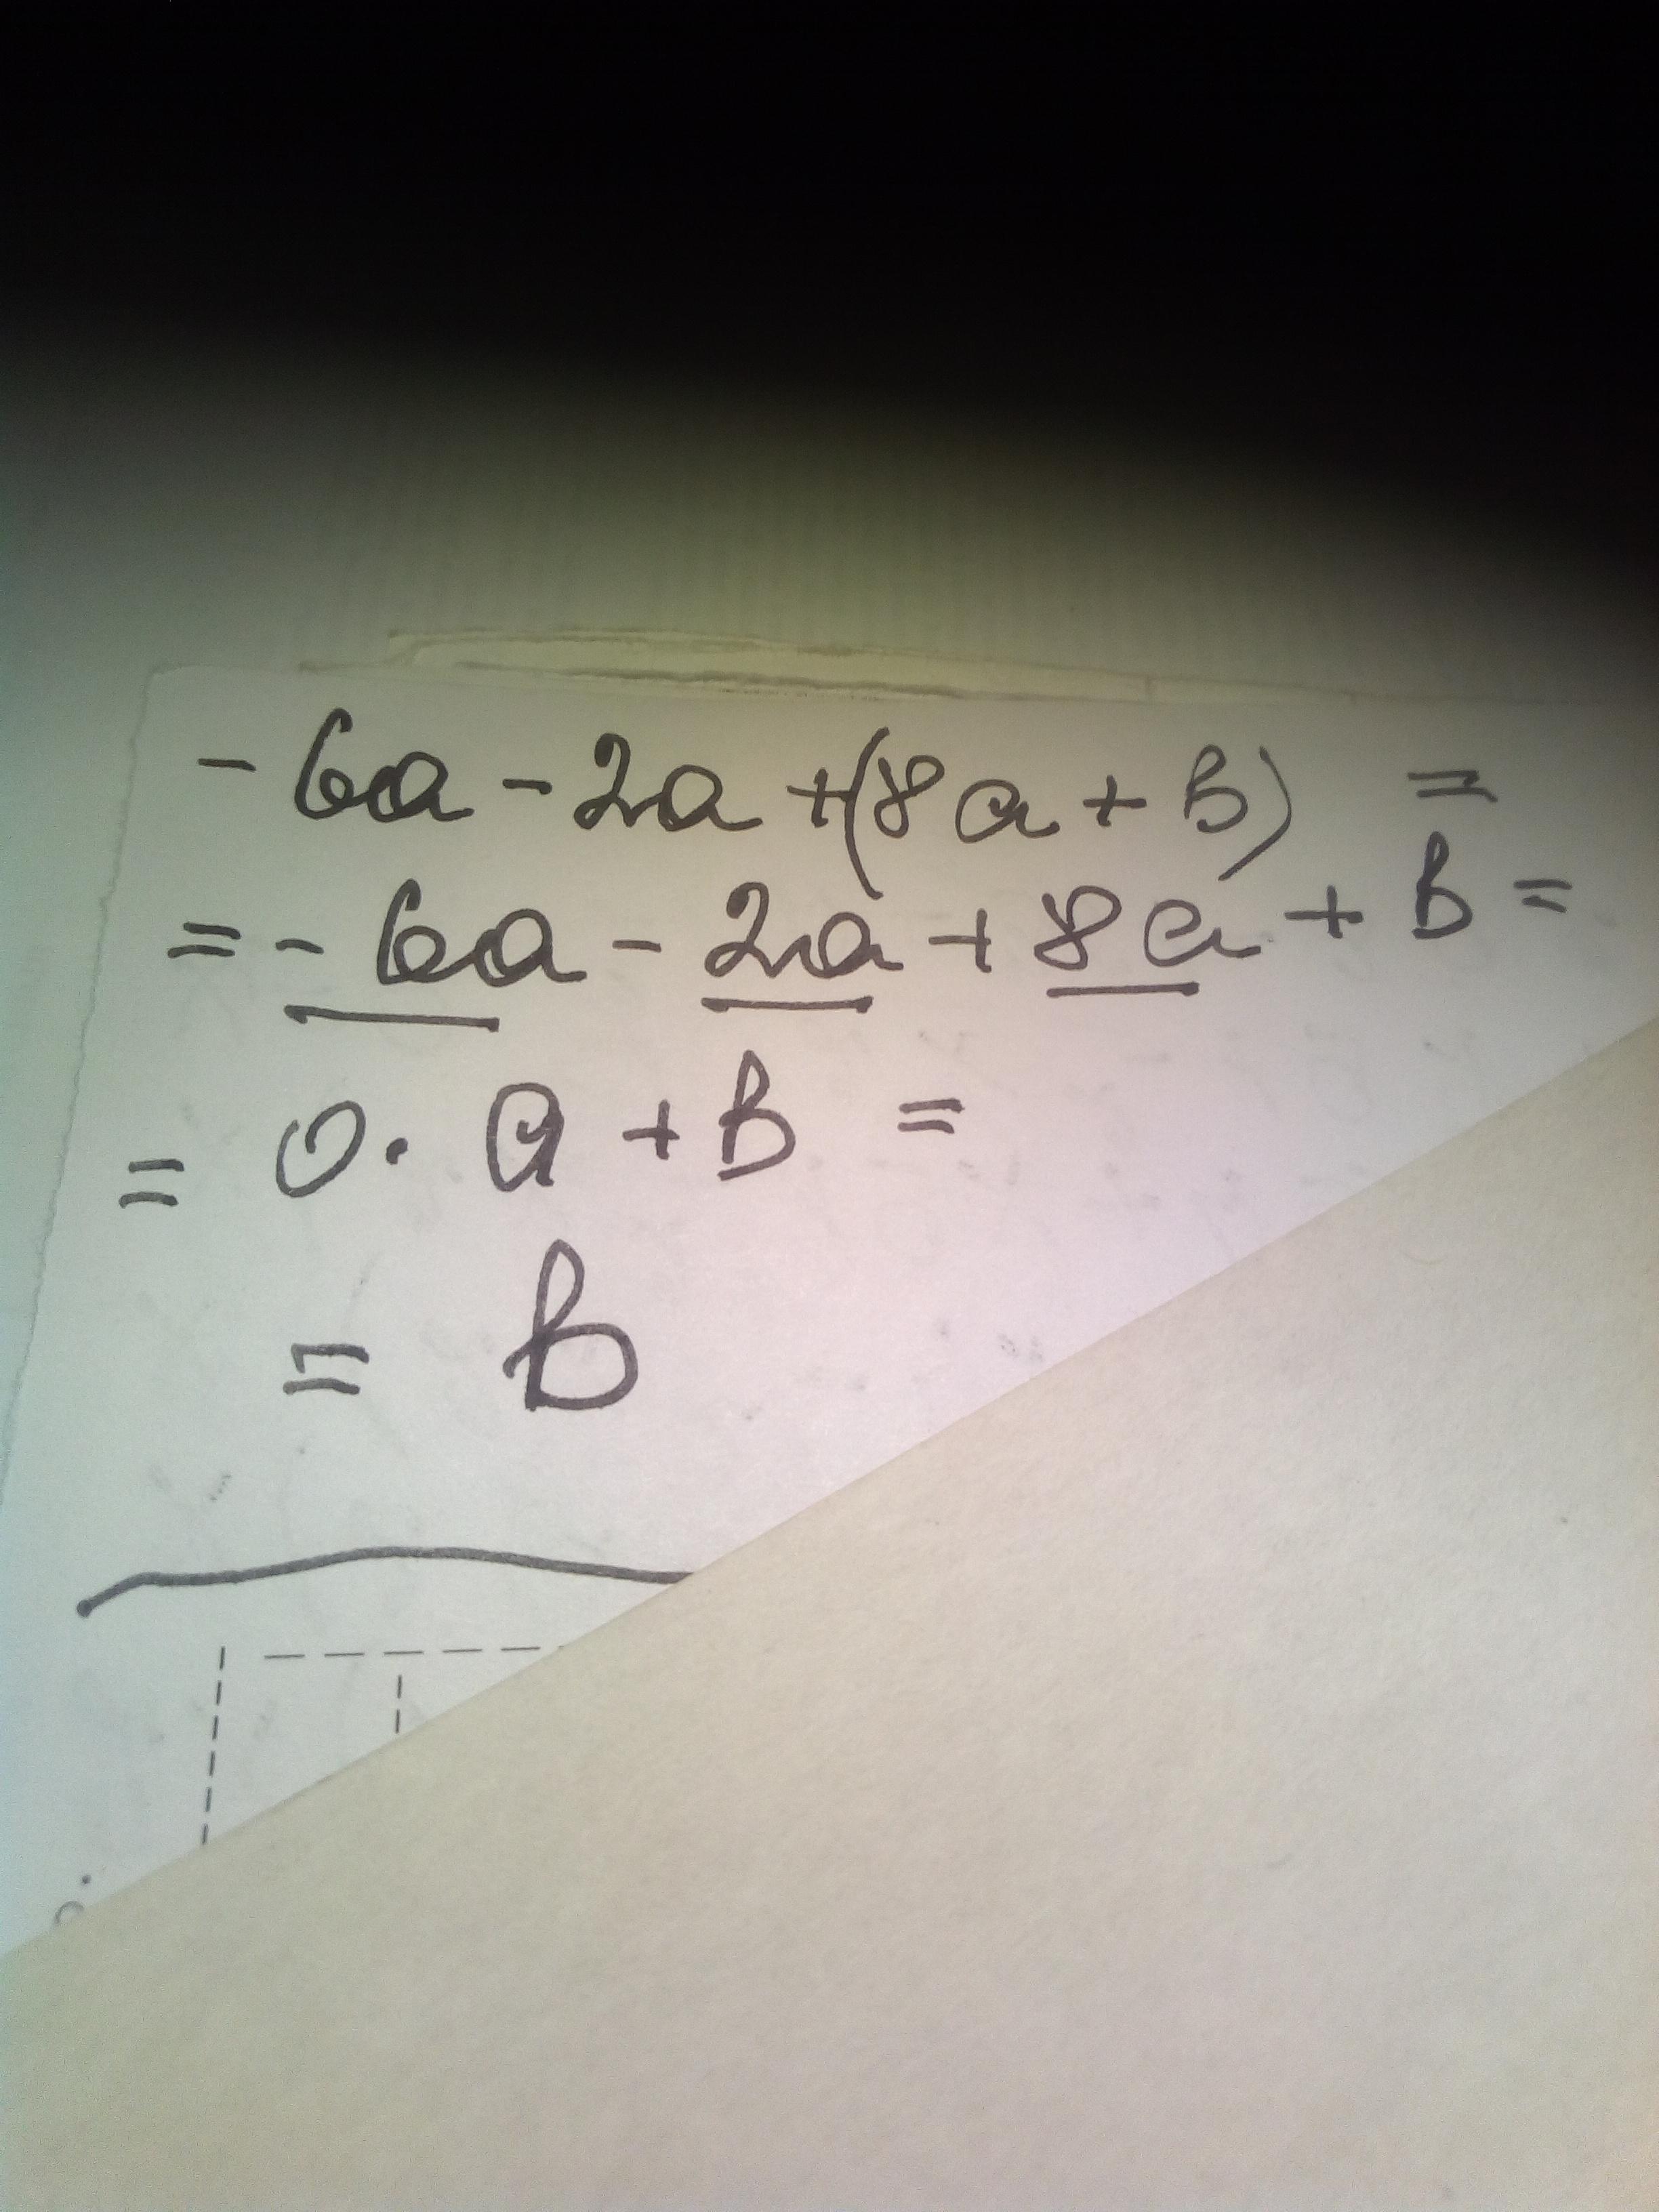 - 6a - 2a + (8a + в) =
= - 6a - 2a + 8a + в =
= 0 · a + в =
= в